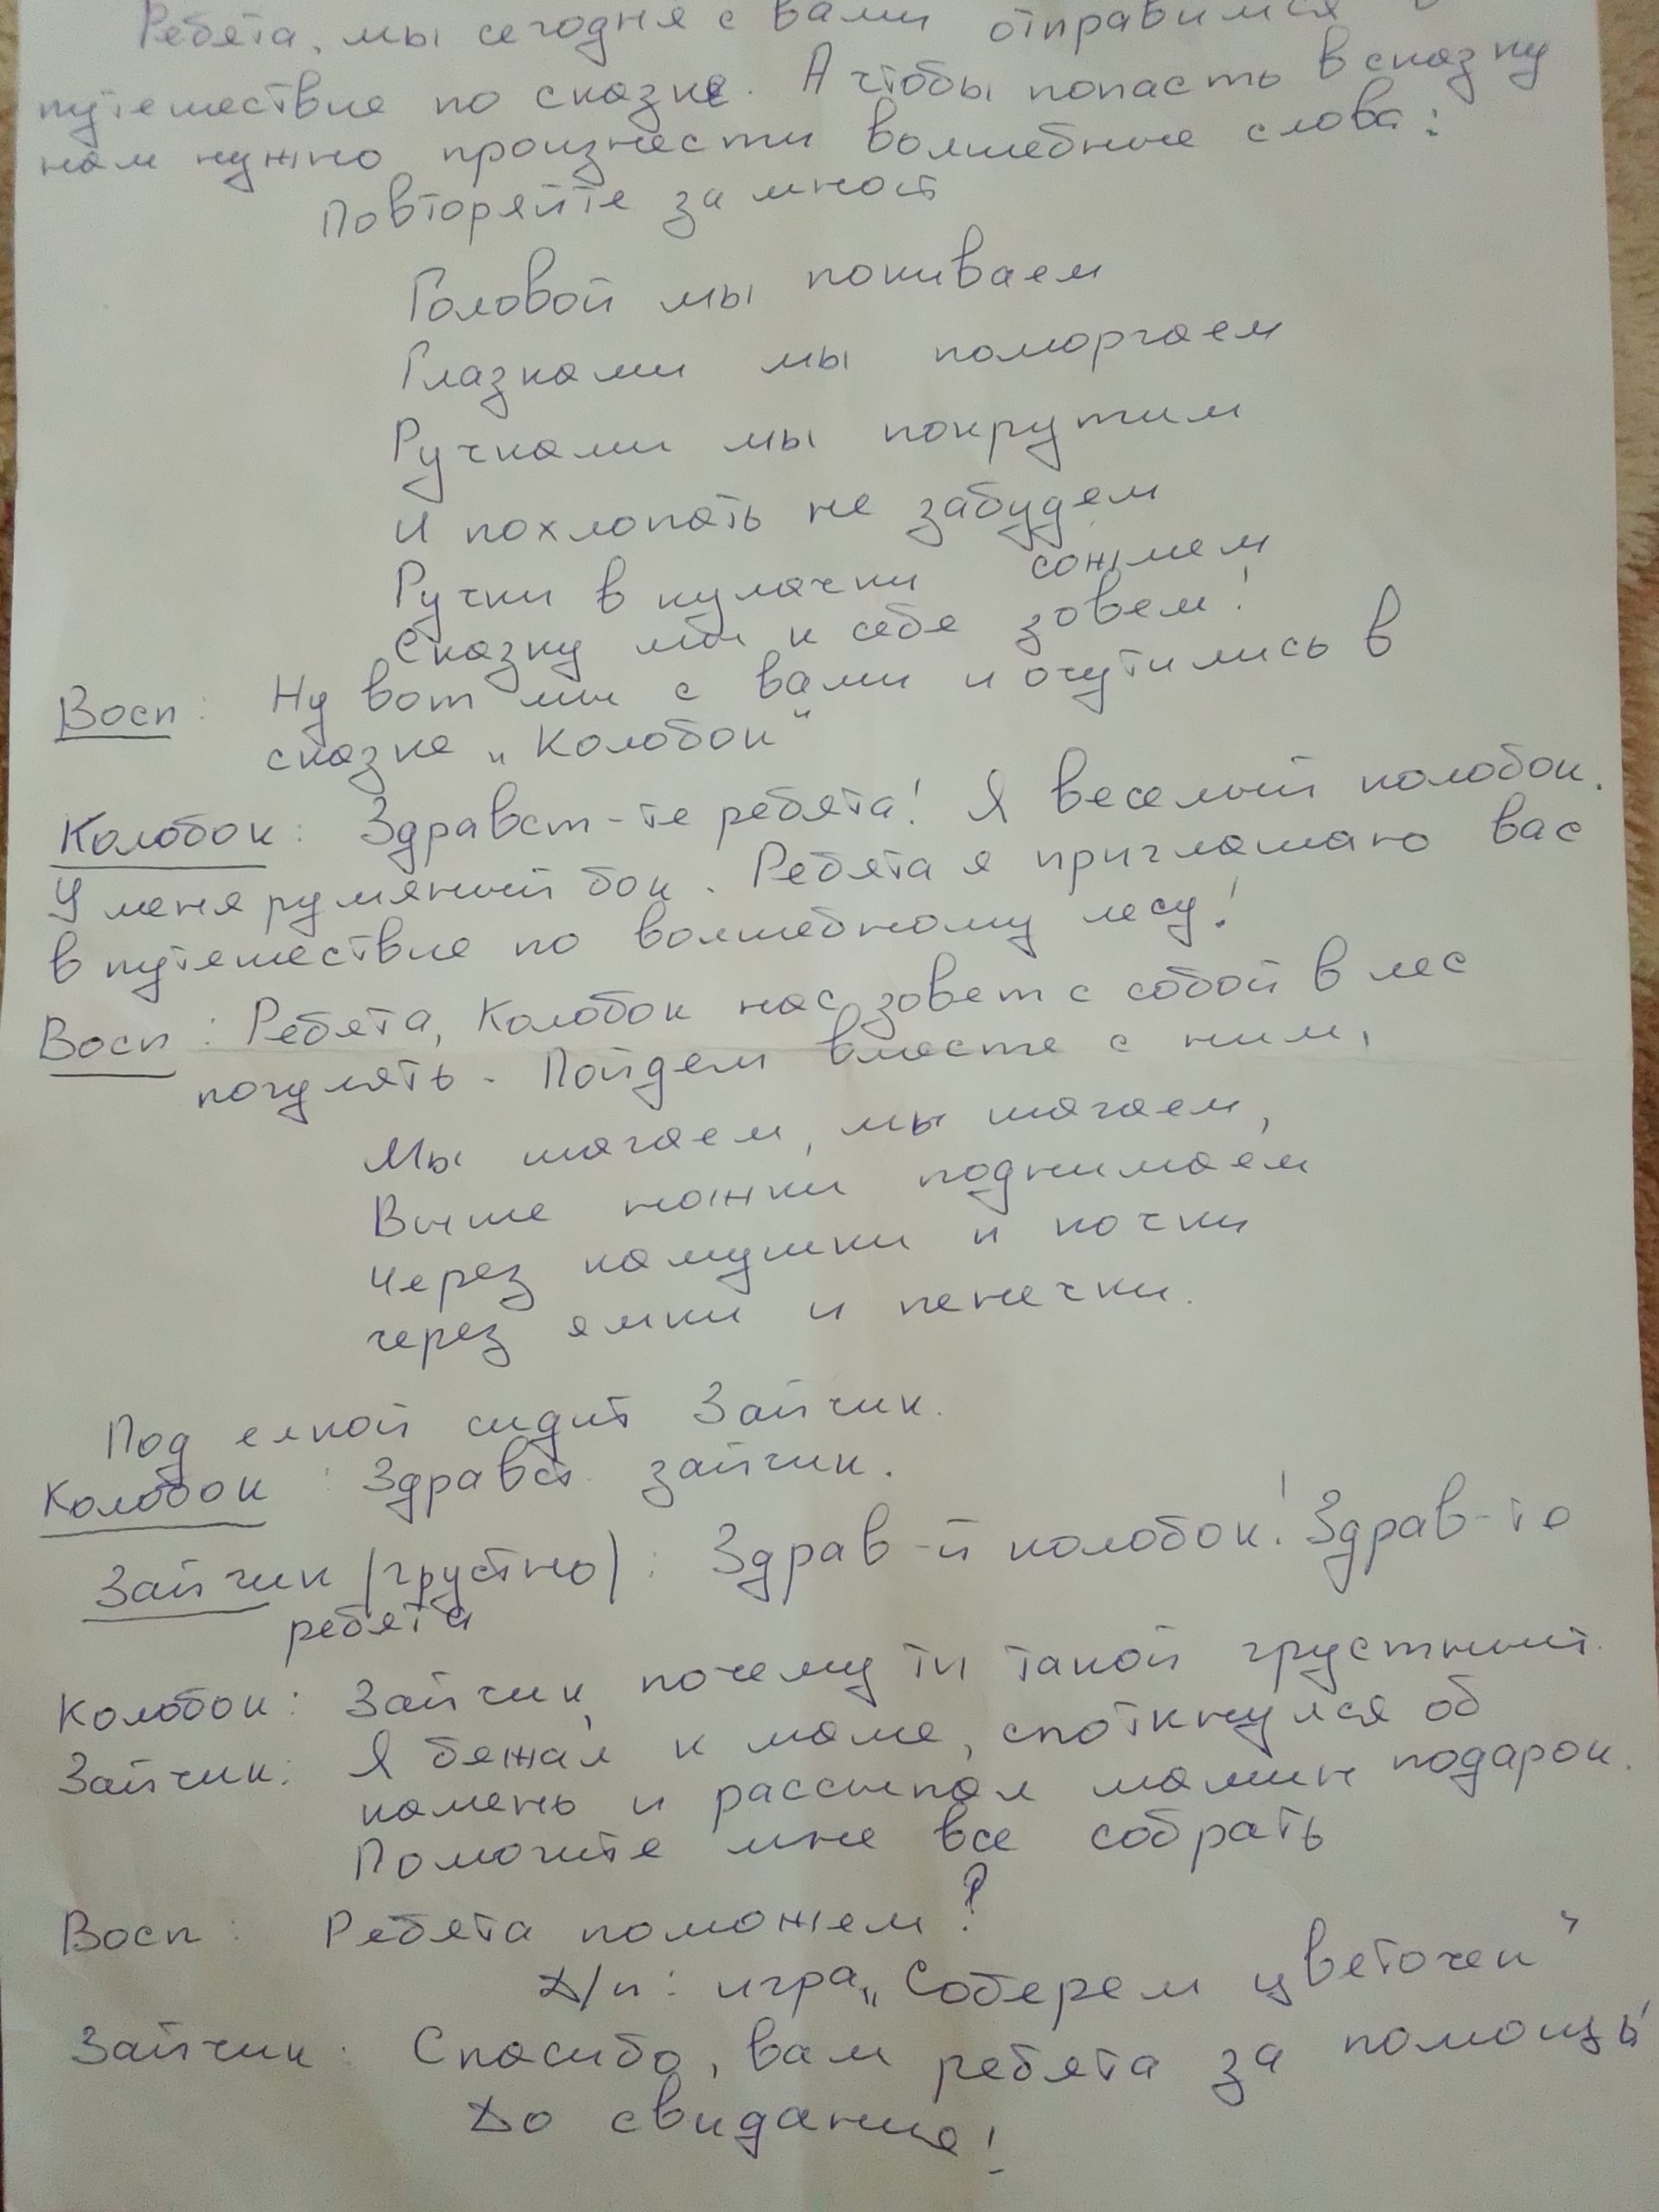 Ребята, мы сегодня с вами отправимся в
путешествие по сказке. А чтобы попасть в сказку
нам нужно произнести волшебные слова:
Повторяйте за мной
Головой мы покиваем
Глазками мы поморгаем
Ручками мы покрутим
И похлопать не забудем
Ручки в кулачки сожмем
Сказку мы к себе зовем!
Восп: Ну вот мы с вами и очутились в
сказке „Колобок"
Колобок: Здравст-те ребята! Я веселый колобок.
У меня румяный бок. Ребята я приглашаю вас
в путешествие по волшебному лесу!
Восп: Ребята, Колобок нас зовет с собой в лес
погулять. Пойдем вместе с ним,
Мы шагаем, мы шагаем,
Выше ножки поднимаем
Через камушки и кочки
через ямки и пенечки.
Под елкой сидит Зайчик.
Колобок: Здравст зайчик.
Зайчик (грустно): Здрав-й колобок! Здрав-те
ребята
Колобок: Зайчик, почему ты такой грустный.
Зайчик: Я бежал к маме, споткнулся об
камень и рассыпал мамин подарок.
Помогите мне все собрать
Восп: Ребята поможем?
Д/и: игра „Соберем цветочек"
Зайчик: Спасибо, вам ребята за помощь!
До свидания!